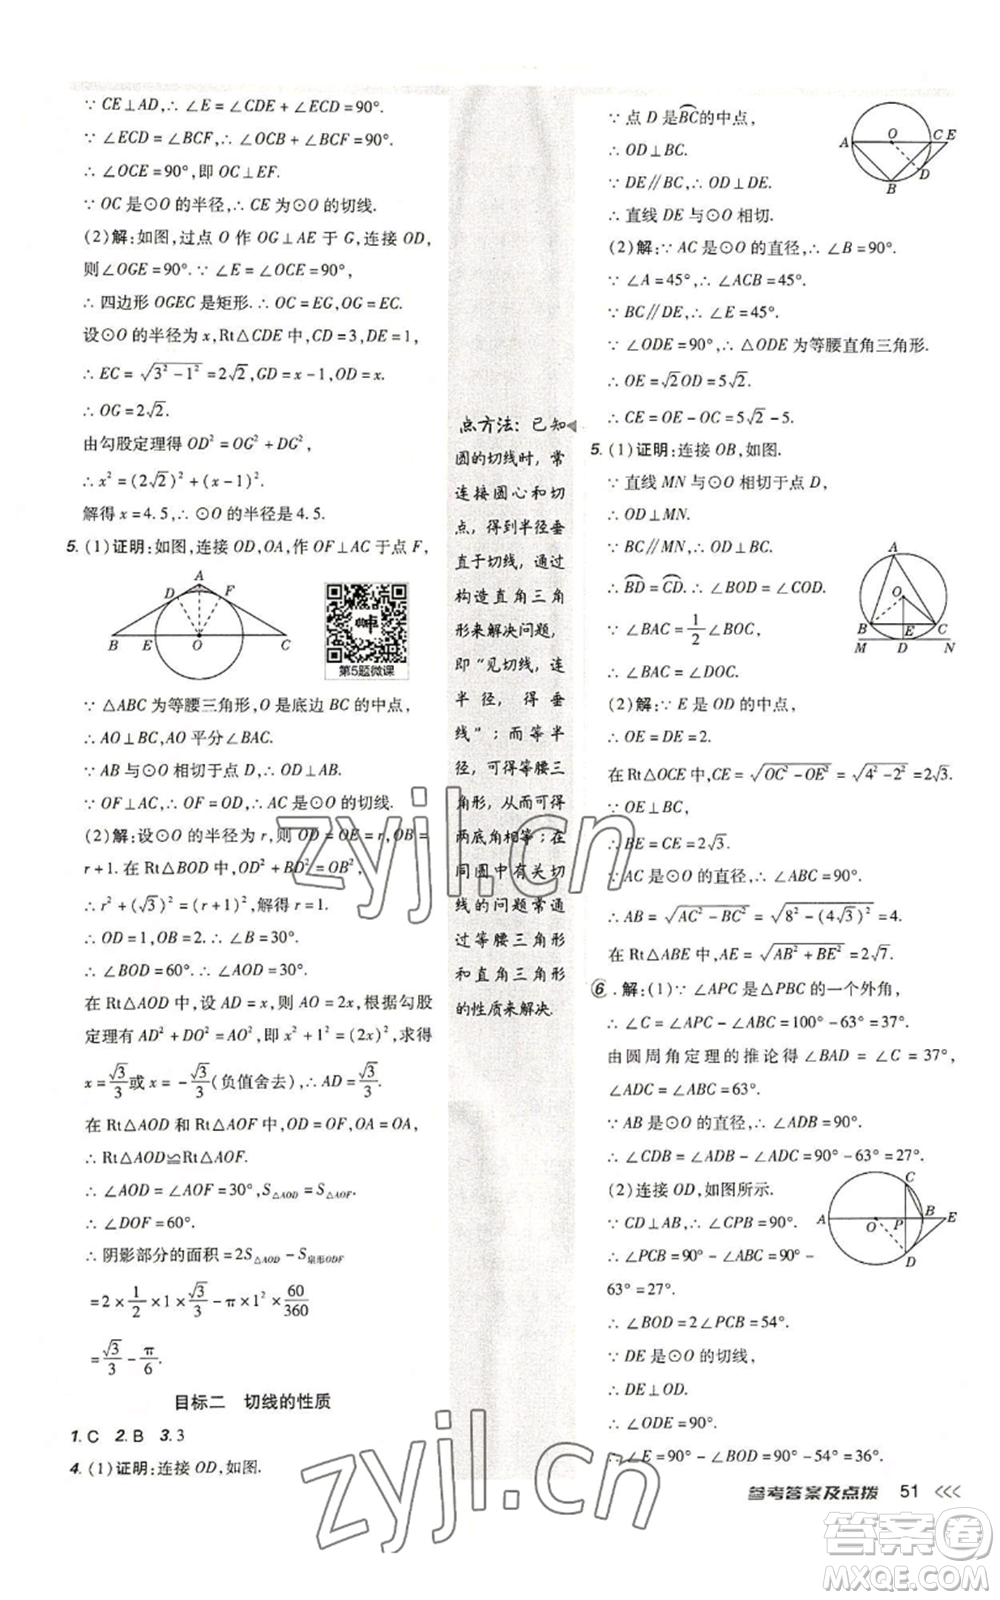 ∵ CE⊥AD,∴ ∠E = ∠CDE + ∠ECD = 90°.
∵ ∠ECD = ∠BCF,∴ ∠OCB + ∠BCF = 90°.
∴ ∠OCE = 90°,即 OC⊥EF.
∵ OC 是⊙O 的半径,∴ CE 为⊙O 的切线.
(2)解:如图,过点 O 作 OG⊥AE 于 G,连接 OD,
则∠OGE = 90°.
∴ 四边形 OGEC 是矩形.∴ OC = EG,OG = EC.
设⊙O 的半径为 x,Rt△CDE 中,CD = 3,DE = 1,
∴ EC = √(3² − 1²) = 2√2,GD = x − 1,OD = x.
∴ OG = 2√2.
由勾股定理得 OD² = OG² + DG²,
∴ x² = (2√2)² + (x − 1)².
解得 x = 4.5,∴ ⊙O 的半径是 4.5.
5. (1)证明:如图,连接 OD,OA,作 OF⊥AC 于点 F,
A
D
F
B
E
O
C
第5题微课
∵ △ABC 为等腰三角形,O 是底边 BC 的中点,
∴ AO⊥BC,AO 平分∠BAC.
∵ AB 与⊙O 相切于点 D,∴ OD⊥AB.
∵ OF⊥AC,∴ OF = OD,∴ AC 是⊙O 的切线.
(2)解:设⊙O 的半径为 r,则 OD = OE = r,OB =
r + 1. 在 Rt△BOD 中,OD² + BD² = OB²,
∴ r² + (√3)² = (r + 1)²,解得 r = 1.
∴ OD = 1,OB = 2.∴ ∠B = 30°.
∴ ∠BOD = 60°.∴ ∠AOD = 30°.
在 Rt△AOD 中,设 AD = x,则 AO = 2x,根据勾股
定理有 AD² + OD² = AO²,即 x² + 1² = (2x)²,求得
x = √3/3 或 x = −√3/3(负值舍去),∴ AD = √3/3.
在 Rt△AOD 和 Rt△AOF 中,OD = OF,OA = OA,
∴ Rt△AOD≌Rt△AOF.
∴ ∠AOD = ∠AOF = 30°,S△AOD = S△AOF.
∴ ∠DOF = 60°.
∴ 阴影部分的面积 = 2S△AOD − S扇形ODF
= 2 × 1/2 × 1 × √3/3 − π × 1² × 60/360
= √3/3 − π/6.
目标二 切线的性质
1. C 2. B 3. 3
4. (1)证明:连接 OD,如图.
点方法:已知
圆的切线时,常
连接圆心和切
点,得到半径垂
直于切线,通过
构造直角三角
形来解决问题,
即“见切线,连
半径,得垂
线”;而等半
径,可得等腰三
角形,从而可得
两底角相等;在
同圆中有关切
线的问题常通
过等腰三角形
和直角三角形
的性质来解决.
∵ 点 D 是BC的中点,
∴ OD⊥BC.
∵ DE∥BC,∴ OD⊥DE.
∴ 直线 DE 与⊙O 相切.
A
O
C
E
B
D
(2)解:∵ AC 是⊙O 的直径,∴ ∠B = 90°.
∵ ∠A = 45°,∴ ∠ACB = 45°.
∵ BC∥DE,∴ ∠E = 45°.
∵ ∠ODE = 90°,∴ △ODE 为等腰直角三角形.
∴ OE = √2OD = 5√2.
∴ CE = OE − OC = 5√2 − 5.
5. (1)证明:连接 OB,如图.
∵ 直线 MN 与⊙O 相切于点 D,
∴ OD⊥MN.
∵ BC∥MN,∴ OD⊥BC.
∴ BD = CD.∴ ∠BOD = ∠COD.
∵ ∠BAC = 1/2∠BOC,
∴ ∠BAC = ∠DOC.
A
O
B
E
C
M
D
N
(2)解:∵ E 是 OD 的中点,
∴ OE = DE = 2.
在 Rt△OCE 中,CE = √(OC² − OE²) = √(4² − 2²) = 2√3.
∵ OE⊥BC,
∴ BE = CE = 2√3.
∵ AC 是⊙O 的直径,∴ ∠ABC = 90°.
∴ AB = √(AC² − BC²) = √(8² − (4√3)²) = 4.
在 Rt△ABE 中,AE = √(AB² + BE²) = 2√7.
6. 解:(1)∵ ∠APC 是△PBC 的一个外角,
∴ ∠C = ∠APC − ∠ABC = 100° − 63° = 37°.
由圆周角定理的推论得∠BAD = ∠C = 37°,
∠ADC = ∠ABC = 63°.
∵ AB 是⊙O 的直径,∴ ∠ADB = 90°.
∴ ∠CDB = ∠ADB − ∠ADC = 90° − 63° = 27°.
(2)连接 OD,如图所示.
∵ CD⊥AB,∴ ∠CPB = 90°.
∴ ∠PCB = 90° − ∠ABC = 90° −
63° = 27°.
∴ ∠BOD = 2∠PCB = 54°.
∵ DE 是⊙O 的切线,
∴ DE⊥OD.
∴ ∠ODE = 90°.
∴ ∠E = 90° − ∠BOD = 90° − 54° = 36°.
C
A
O
P
B
E
D
参考答案及点拨 51
zyjl.cn
zyjl.cn
答案卷
MXQE.COM